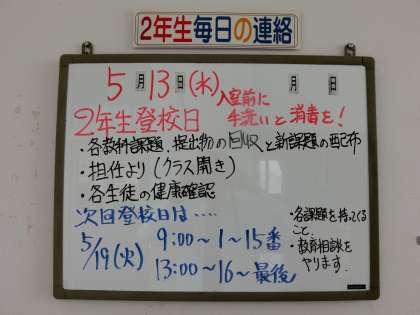 2年生毎日の連絡
5月13日(水) 入室前に 月 日
2年生登校日 手洗いと消毒を!
・各教科課題 提出物の回収と新課題の配布
・担任より(クラス開き)
・各生徒の健康確認
次回登校日は‥‥
5/19(火) 9:00~1~15番
13:00~16~最後
・各課題を持ってくる
こと.
・教育相談を
やります.